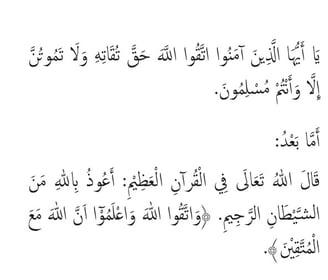 يَا أَيُّهَا الَّذِينَ آمَنُوا اتَّقُوا اللهَ حَقَّ تُقَاتِهِ وَلَا تَمُوتُنَّ
إِلَّا وَأَنْتُمْ مُسْلِمُونَ.
أَمَّا بَعْدُ:
قَالَ اللهُ تَعَالَى فِي الْقُرْآنِ الْعَظِيْمِ: أَعُوذُ بِاللهِ مِنَ
الشَّيْطَانِ الرَّجِيمِ. ﴿وَاتَّقُوا اللهَ وَاعْلَمُوْٓا أَنَّ اللهَ مَعَ
الْمُتَّقِيْنَ﴾.